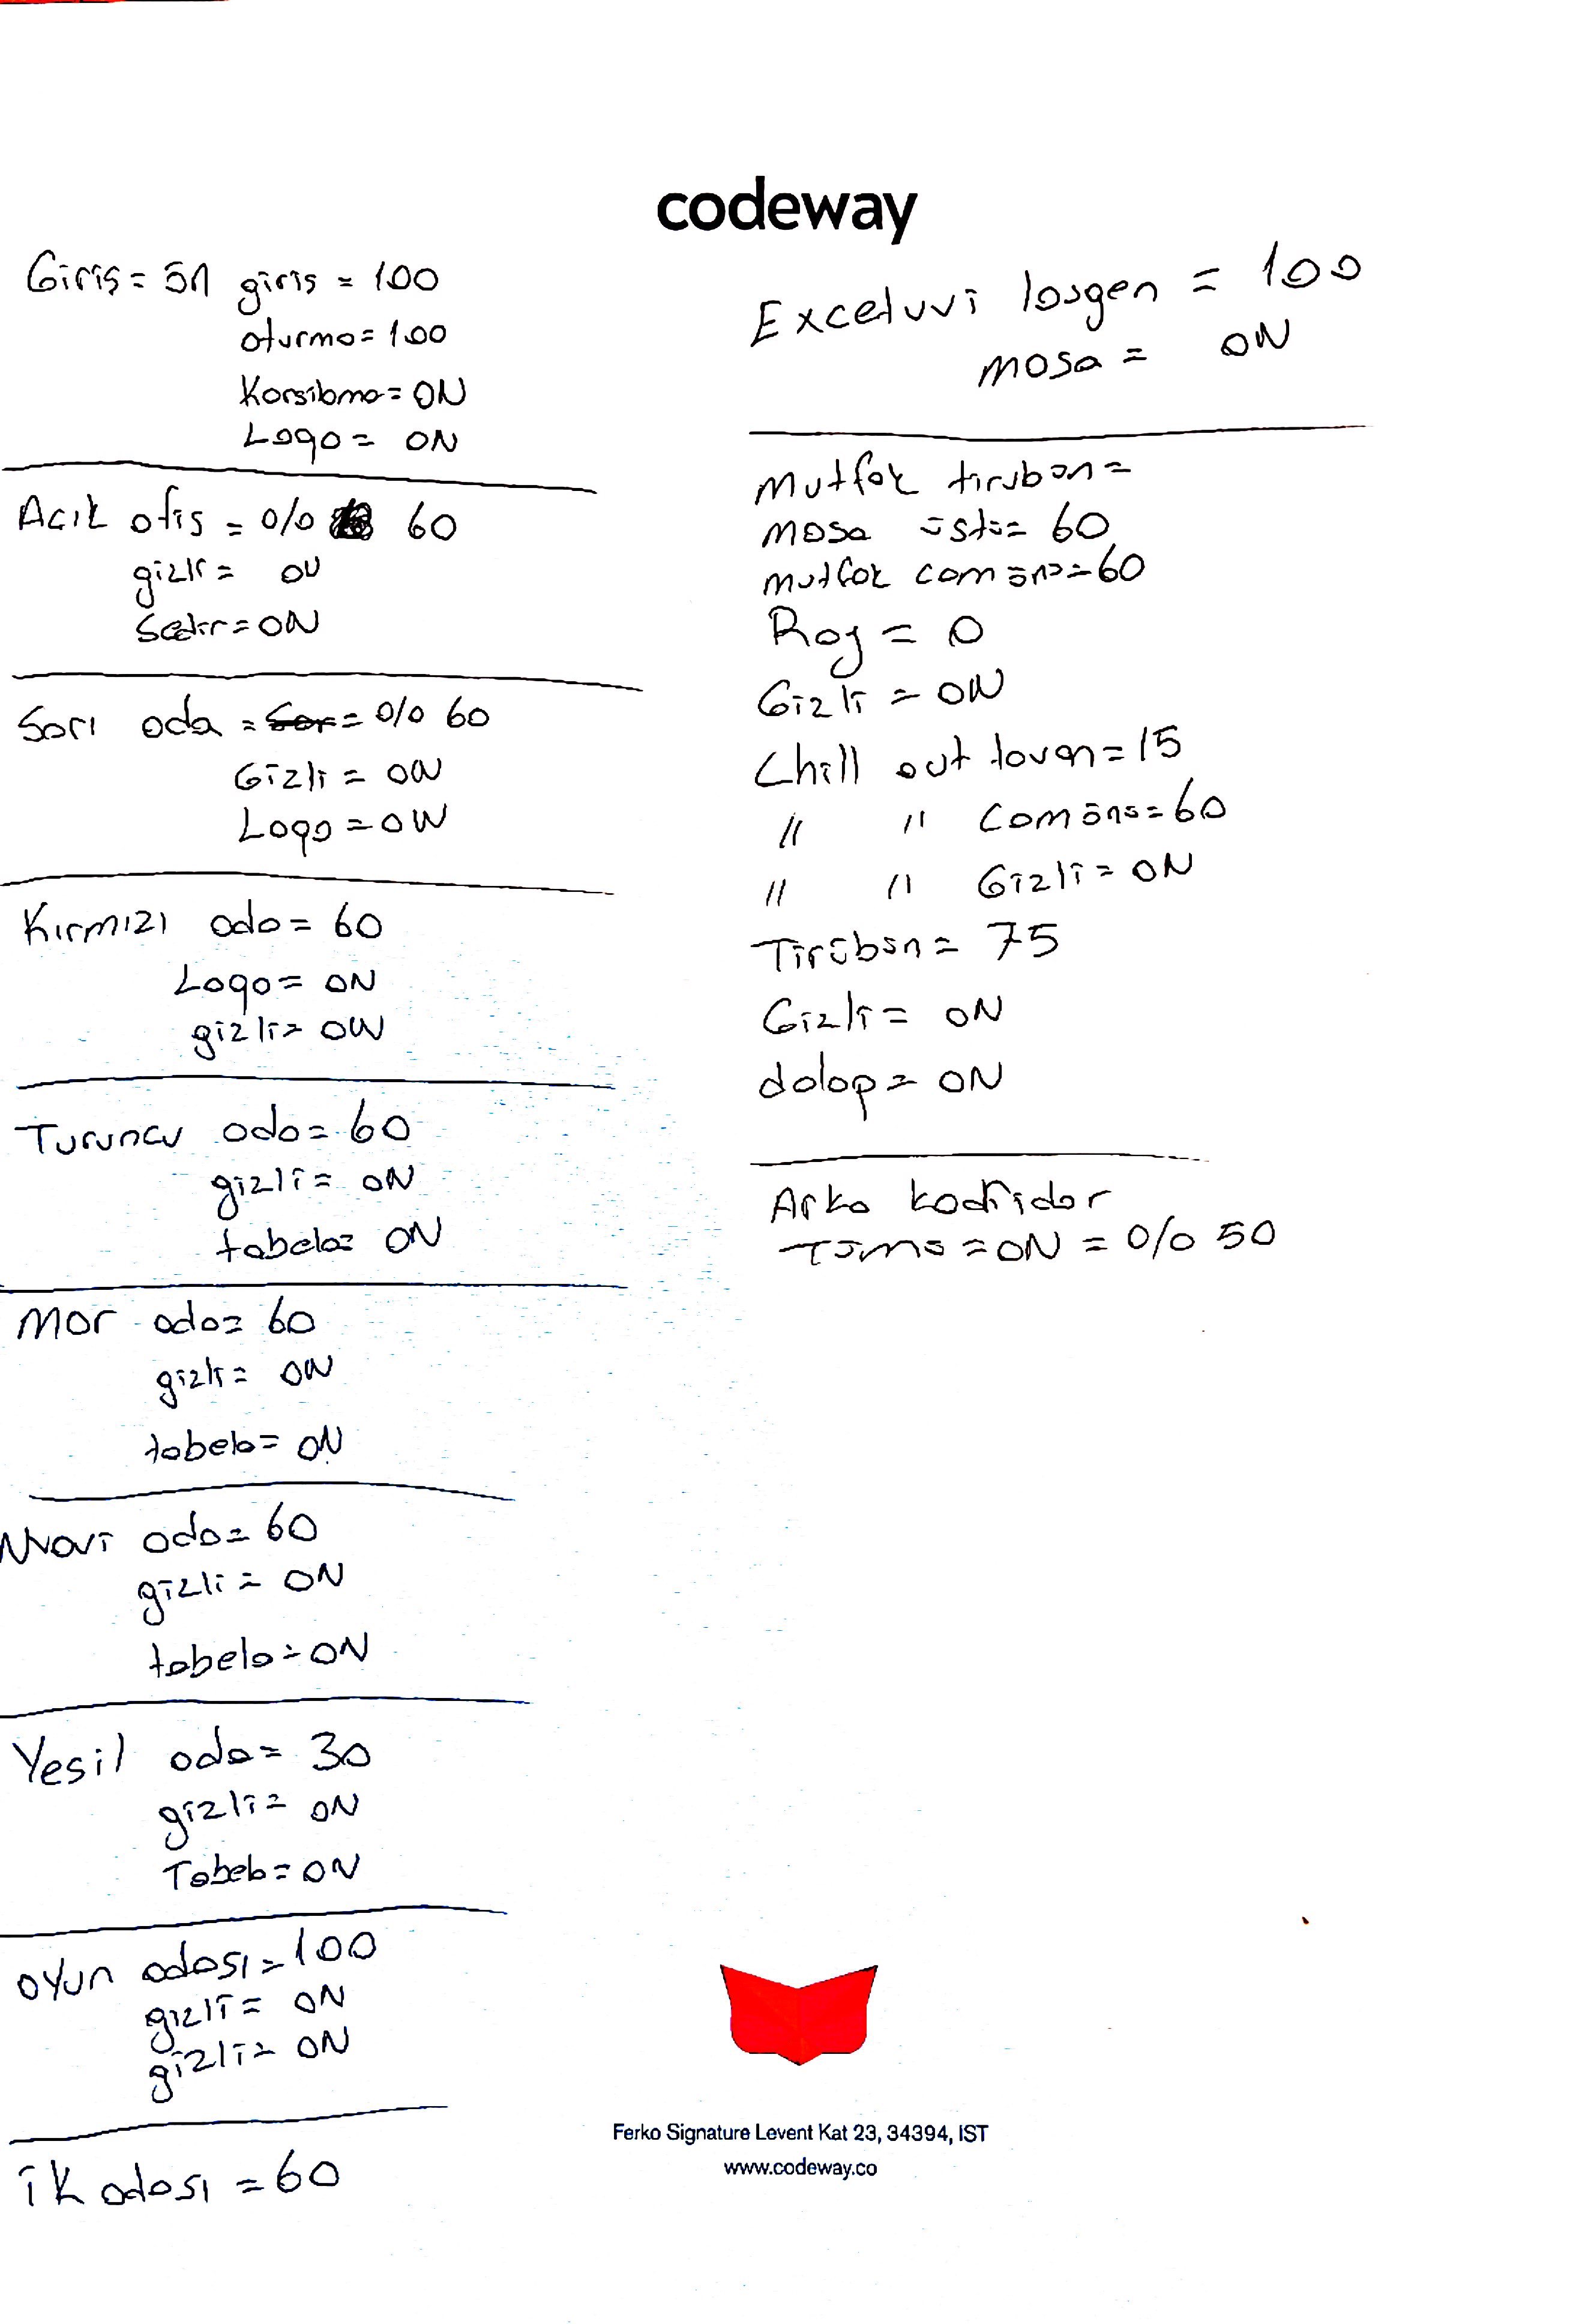 codeway
Giris = ön giris = 100
oturma = 100
Karsilama = ON
Logo = ON
Acik ofis = 0/0 60
gizli = ON
Sedir = ON
Sarı oda = = 0/0 60
Gizli = ON
Logo = ON
Kırmızı oda = 60
Logo = ON
gizli = ON
Turuncu oda = 60
gizli = ON
tabela = ON
Mor oda = 60
gizli = ON
tabela = ON
Mavi oda = 60
gizli = ON
tabela = ON
Yesil oda = 30
gizli = ON
Tabela = ON
oyun odası = 100
gizli = ON
gizli = ON
ik odası = 60
Exceluvi losgen = 100
masa = ON
Mutfak tirubön =
masa üstü = 60
mutfak cam önü = 60
Raf = 0
Gizli = ON
Chill out tavan = 15
" " Cam önü = 60
" " Gizli = ON
Tirübün = 75
Gizli = ON
dolap = ON
Arka koridor
Tümü = ON = 0/0 50
Ferko Signature Levent Kat 23, 34394, IST
www.codeway.co